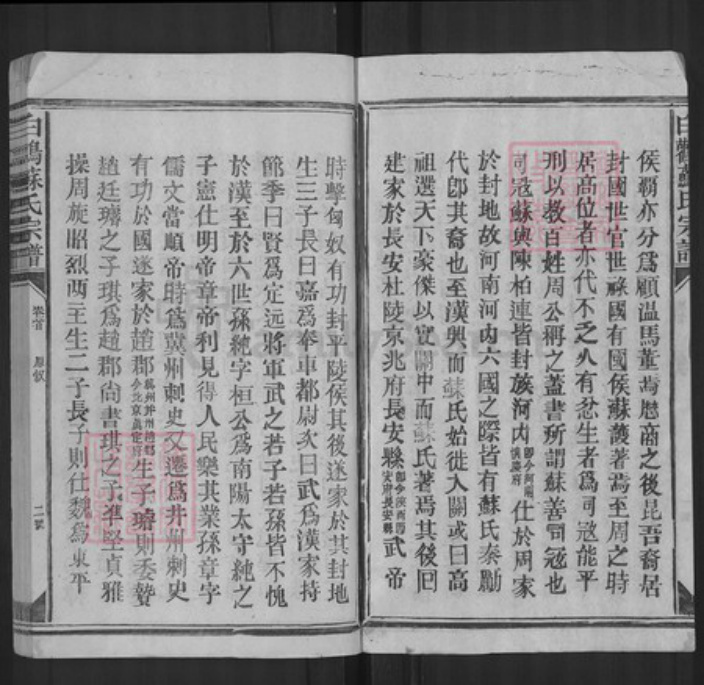 侯霸亦分爲顧溫馬董焉歴商之後昆吾裔居
封國世官世祿國有國侯蘇護著焉至周之時
居高位者亦代不乏人有忿生者爲司冦能平
刑以教百姓周公稱之蓋書所謂蘇善司冦也
司冦蘇與陳柏連皆封族河内卽今河南懷慶府仕於周家
於封地故河南河内六國之際皆有蘇氏秦勵
代卽其裔也至漢興而蘇氏始徙入關或曰高
祖選天下豪傑以實關中而蘇氏著焉其後囘
建家於長安杜陵京兆府長安縣卽今陝西西安府長安縣武帝
時擊匈奴有功封平陵侯其後遂家於其封地
生三子長曰嘉爲奉車都尉次曰武爲漢家持
節季曰賢爲定遠將軍武之若子若孫皆不愧
於漢至於六世孫純字桓公爲南陽太守純之
子憲仕明帝章帝利見得人民樂其業孫章字
儒文當順帝時爲冀州刺史又遷爲并州刺史
有功於國遂家於趙郡冀州并州趙郡今北京眞定府生子瓊則委贄
趙廷瓊之子琪爲趙郡尙書琪之子準堅貞雅
操周旋昭烈两主生二子長子則仕魏爲東平
白鶴蘇氏宗譜
卷首
二號
白鶴蘇氏宗譜